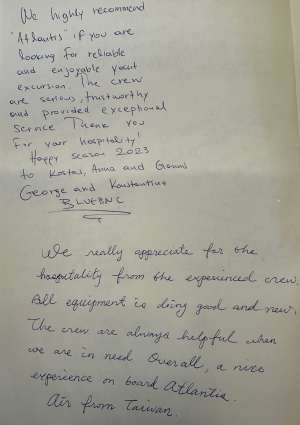 We highly recommend
"Atlantis" if you are
looking for reliable
and enjoyable yacht
excursion. The crew
are serious, trustworthy
and provided exceptional
service Thank you
for your hospitality!
Happy season 2023
to Kostas, Anna and Giannis
George and Konstantina
BLUEBNC
We really appreciate for the
hospitality from the experienced crew.
All equipment is doing good and new.
The crew are always helpful when
we are in need Overall, a nice
experience on board Atlantis.
Air from Taiwan.